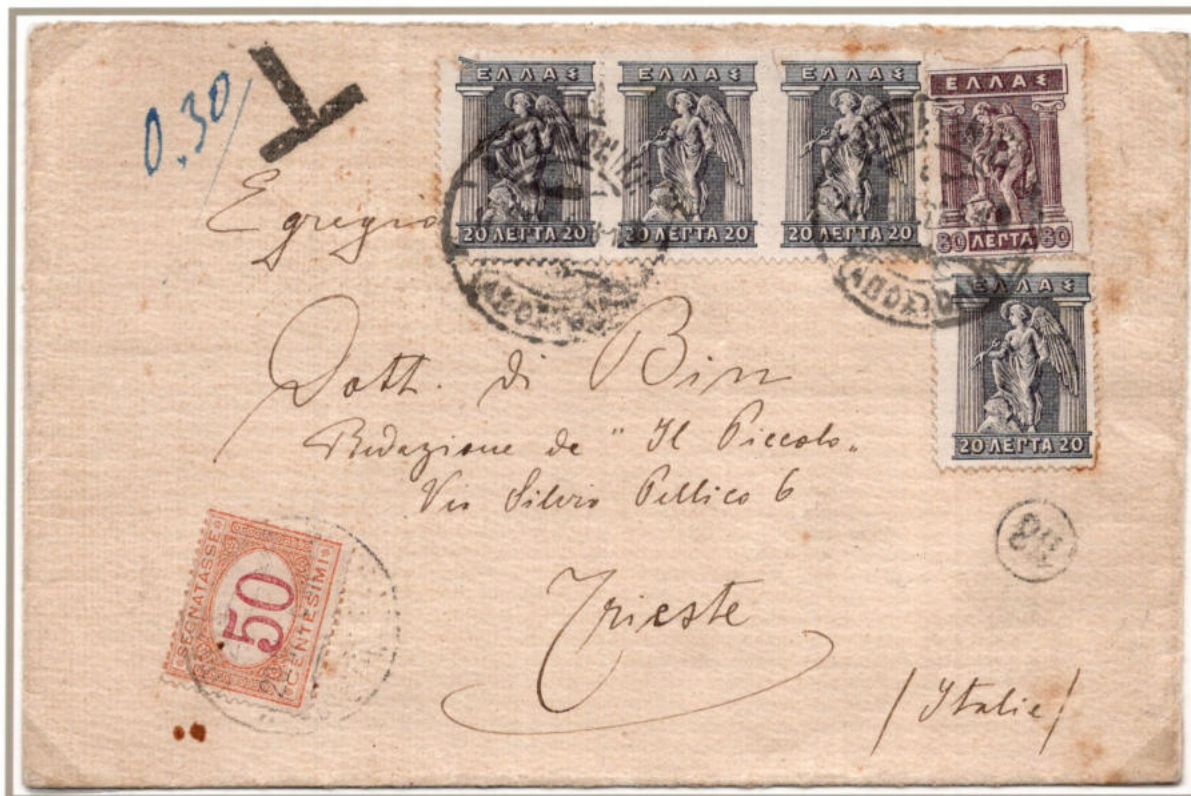 0.30
T
ΕΛΛΑΣ ΕΛΛΑΣ ΕΛΛΑΣ ΕΛΛΑΣ
20 ΛΕΠΤΑ 20 20 ΛΕΠΤΑ 20 20 ΛΕΠΤΑ 20 80 ΛΕΠΤΑ 80
ΕΛΛΑΣ
20 ΛΕΠΤΑ 20
Egregio
Dott. di Bin
Redazione de "Il Piccolo"
Via Silvio Pellico 6
Trieste
(Italie)
SEGNATASSE
50
CENTESIMI